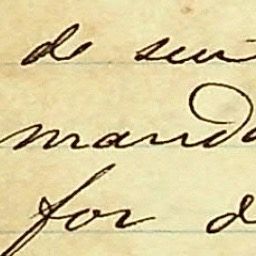 de seu
mand
for d